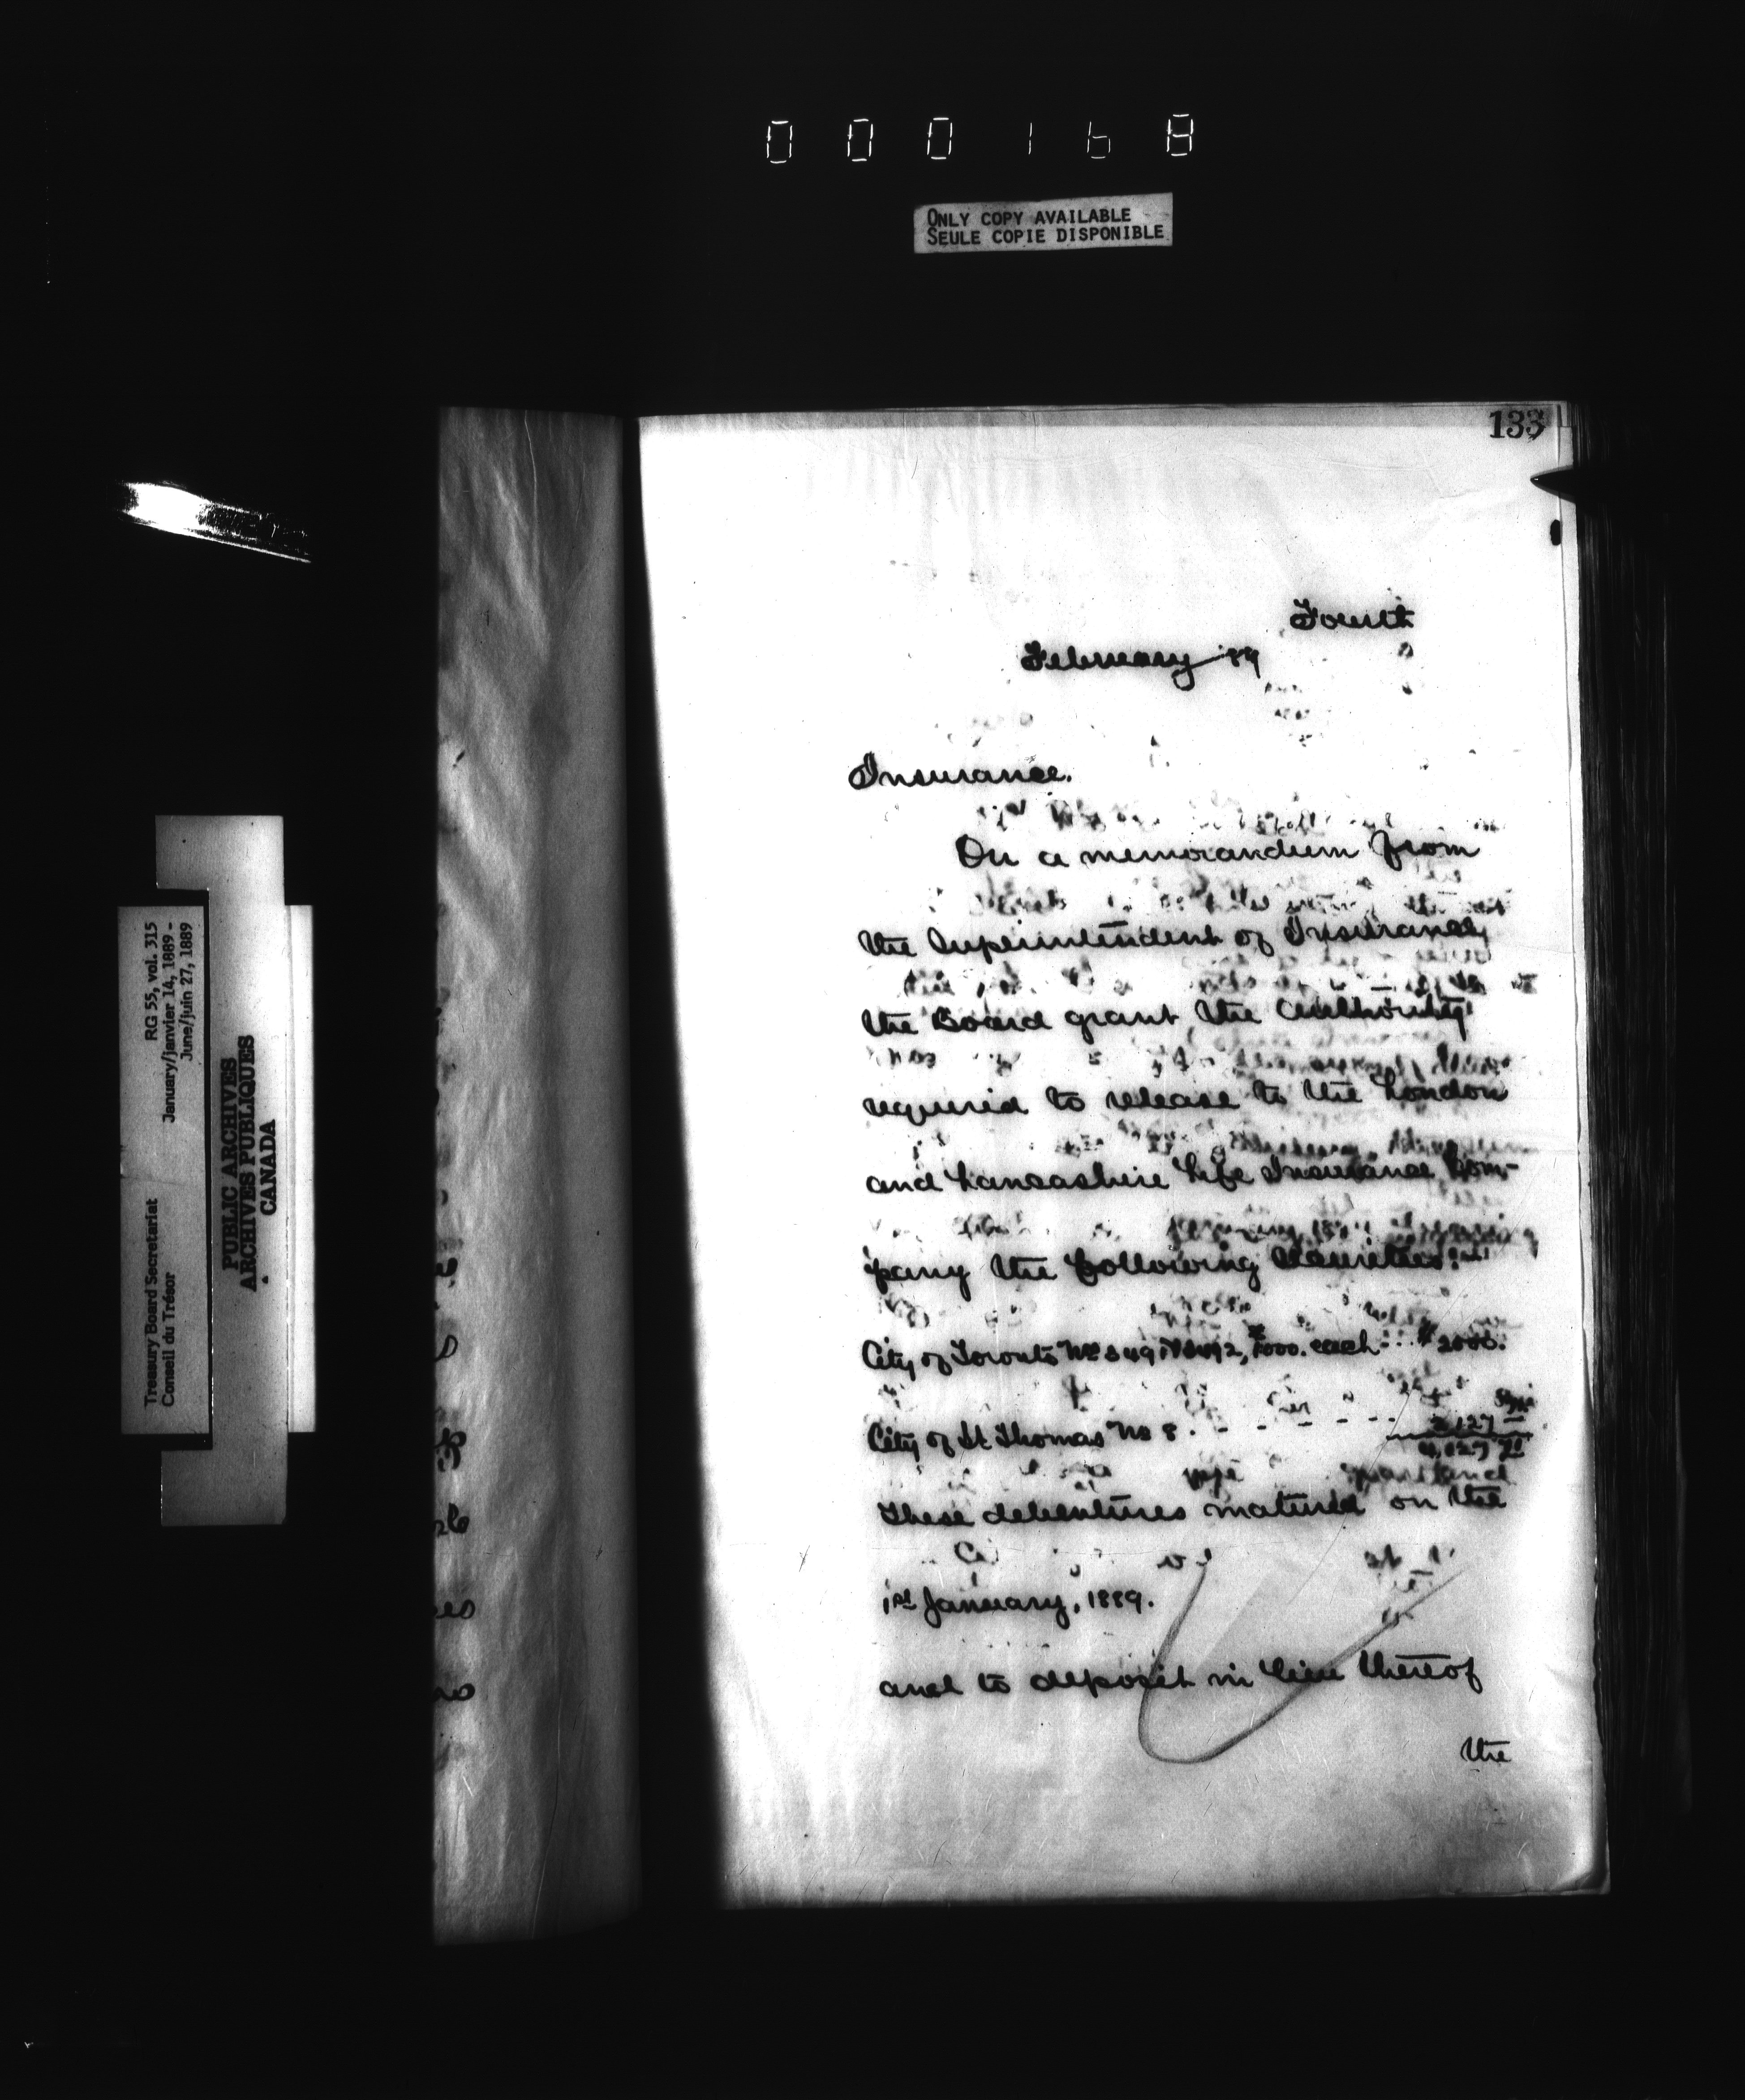 000168
ONLY COPY AVAILABLE
SEULE COPIE DISPONIBLE
133
Fourth
February 89
Insurance.
On a memorandum from
the Superintendent of Insurance,
the Board grant the authority
required to release to the London
and Lancashire Life Insurance Com-
pany the following securities:
City of Toronto Nos 3491 3492, $1000. each $2000.
City of St Thomas No 8. - - - - - 2,127
4,127 71
These debentures matured on the
1st January, 1889.
and to deposit in lieu thereof
the
Treasury Board Secretariat RG 55, vol. 315
Conseil du Trésor January/janvier 14, 1889 -
June/juin 27, 1889
PUBLIC ARCHIVES
ARCHIVES PUBLIQUES
CANADA